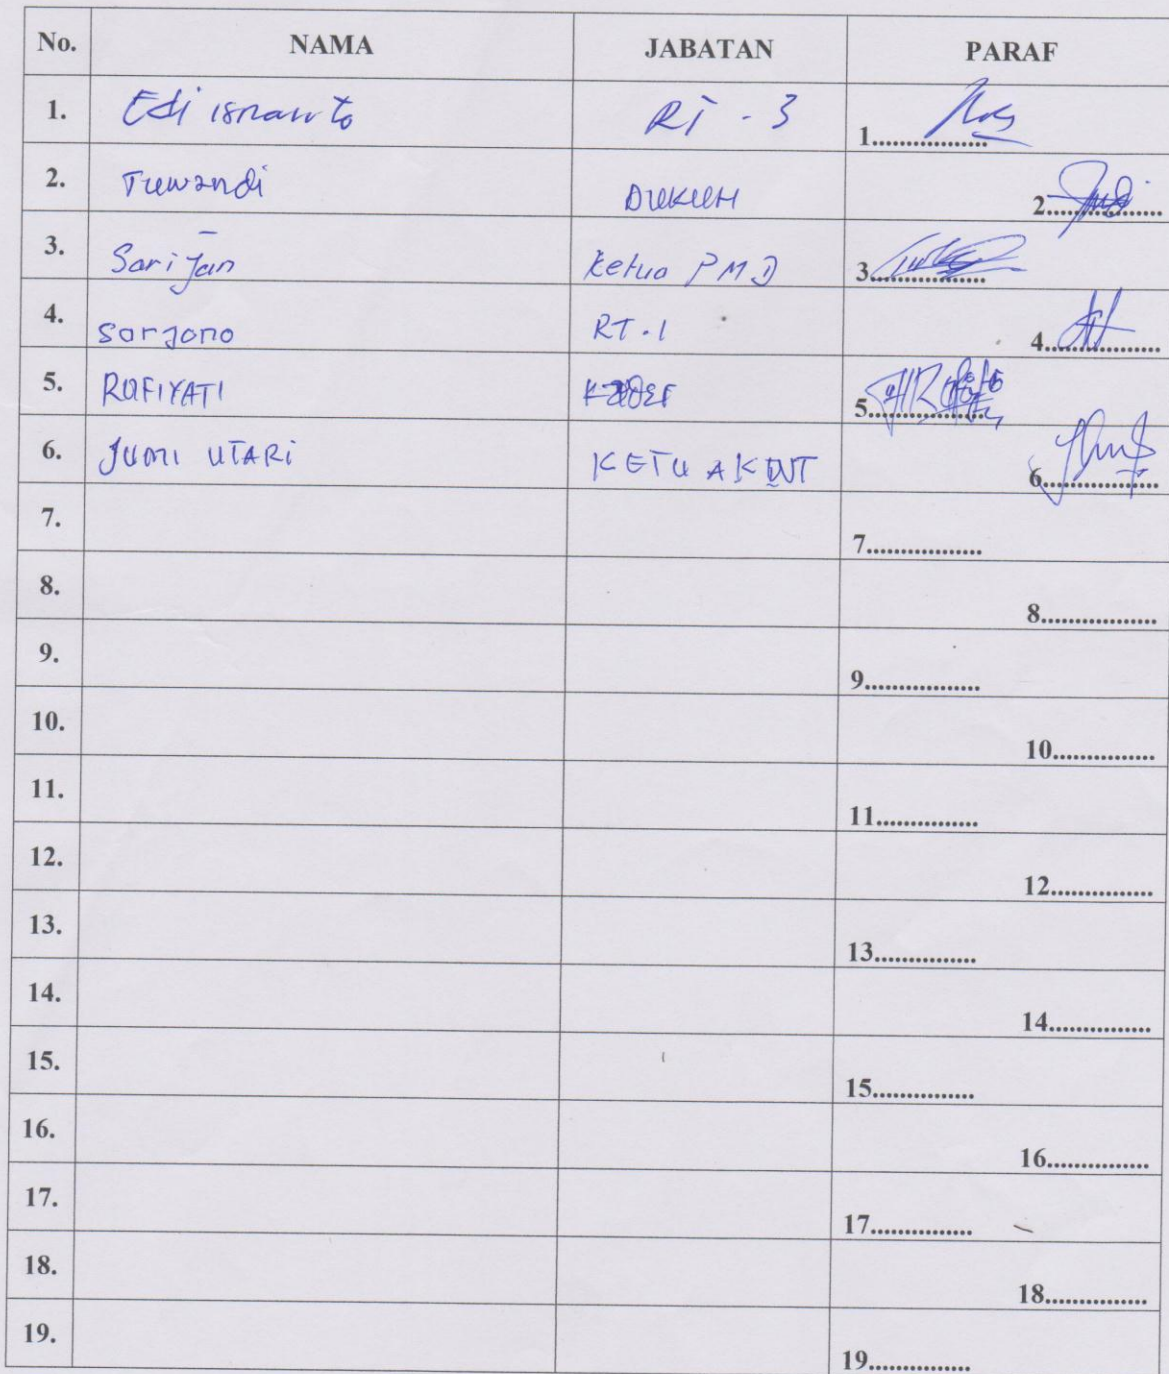 No. NAMA JABATAN PARAF
1. Edi isnawto RT - 3 1.................
2. Tuwandi DUKUH 2.................
3. Sarijan Ketua PMD 3.................
4. sarjono RT.1 4.................
5. RUFIYATI 5.................
6. JUMI UTARI KETUA KWT 6.................
7. 7.................
8. 8.................
9. 9.................
10. 10...............
11. 11...............
12. 12...............
13. 13...............
14. 14...............
15. 15...............
16. 16...............
17. 17...............
18. 18...............
19. 19...............